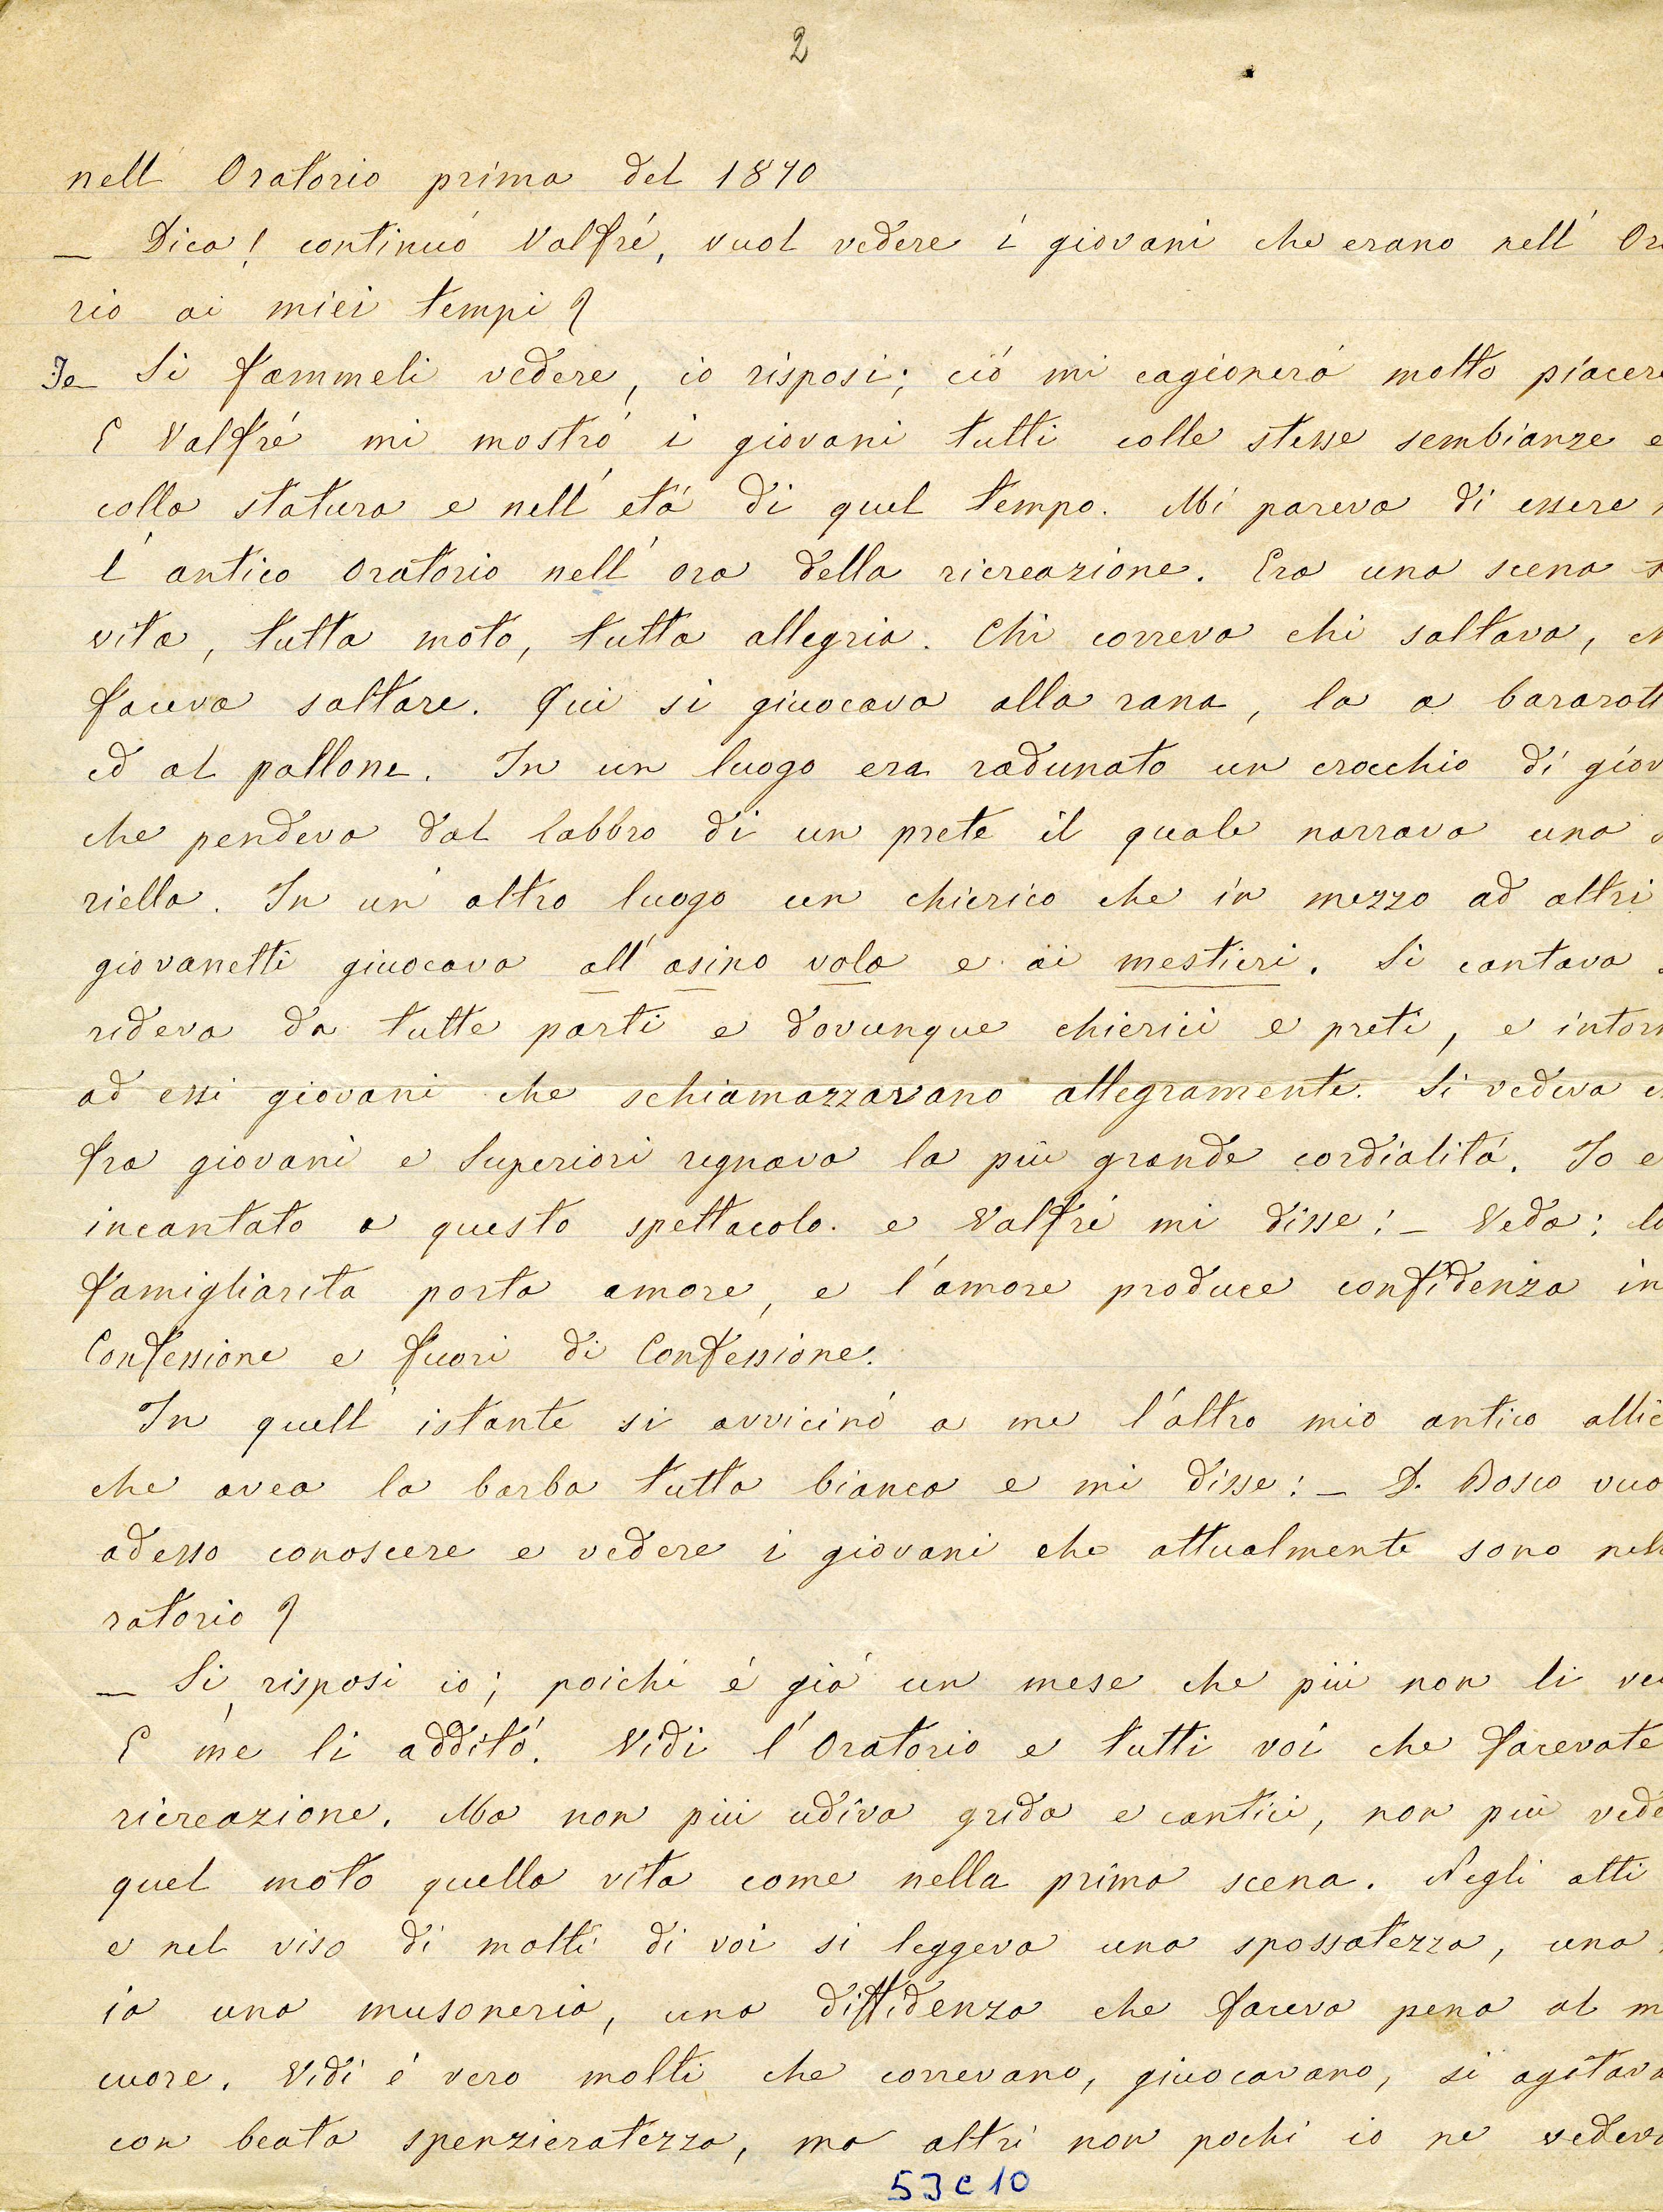 2
nell' Oratorio prima del 1870
— Dica! continuó Valfré, vuol vedere i giovani che erano nell' Or
rio ai miei tempi?
Io — Si fammeli vedere, io risposi; ció mi cagionerá molto piacere
E Valfré mi mostró i giovani tutti colle stesse sembianze e
colla statura e nell' etá di quel tempo. Mi pareva di essere
l' antico Oratorio nell' ora della ricreazione. Era una scena
vita, tutta moto, tutta allegria. Chi correva chi saltava, ch
faceva saltare. Qui si giuocava alla rana, la a bararott
ed al pallone. In un luogo era radunato un crocchio di giov
che pendeva dal labbro di un prete il quale narrava una
riella. In un' altro luogo un chierico che in mezzo ad altri
giovanetti giuocava all' asino vola e ai mestieri. Si cantava
rideva da tutte parti e dovunque chierici e preti, e intorn
ad essi giovani che schiamazzavano allegramente. Si vedeva c
fra giovani e Superiori regnava la piú grande cordialitá. Io e
incantato a questo spettacolo. e Valfré mi disse: — Veda: la
famigliarita porta amore, e l' amore produce confidenza in
Confessione e fuori di Confessione.
In quell' istante si avvicinó a me l' altro mio antico allie
che avea la barba tutta bianca e mi disse: — D. Bosco vuo
adesso conoscere e vedere i giovani che attualmente sono nell
ratorio?
— Si, risposi io; poiché é giá un mese che piú non li ve
E me li additó. Vidi l' Oratorio e tutti voi che facevate
ricreazione. Ma non piú udiva grida e cantici, non piú vede
quel moto quella vita come nella prima scena. Negli atti
e nel viso di molti di voi si leggeva una spossatezza, una
ia una musoneria, una diffidenza che faceva pena al m
cuore. Vidi é vero molti che correvano, giuocavano, si agitava
con beata spenzieratezza, ma altri non pochi io ne vedeva
53 C 10